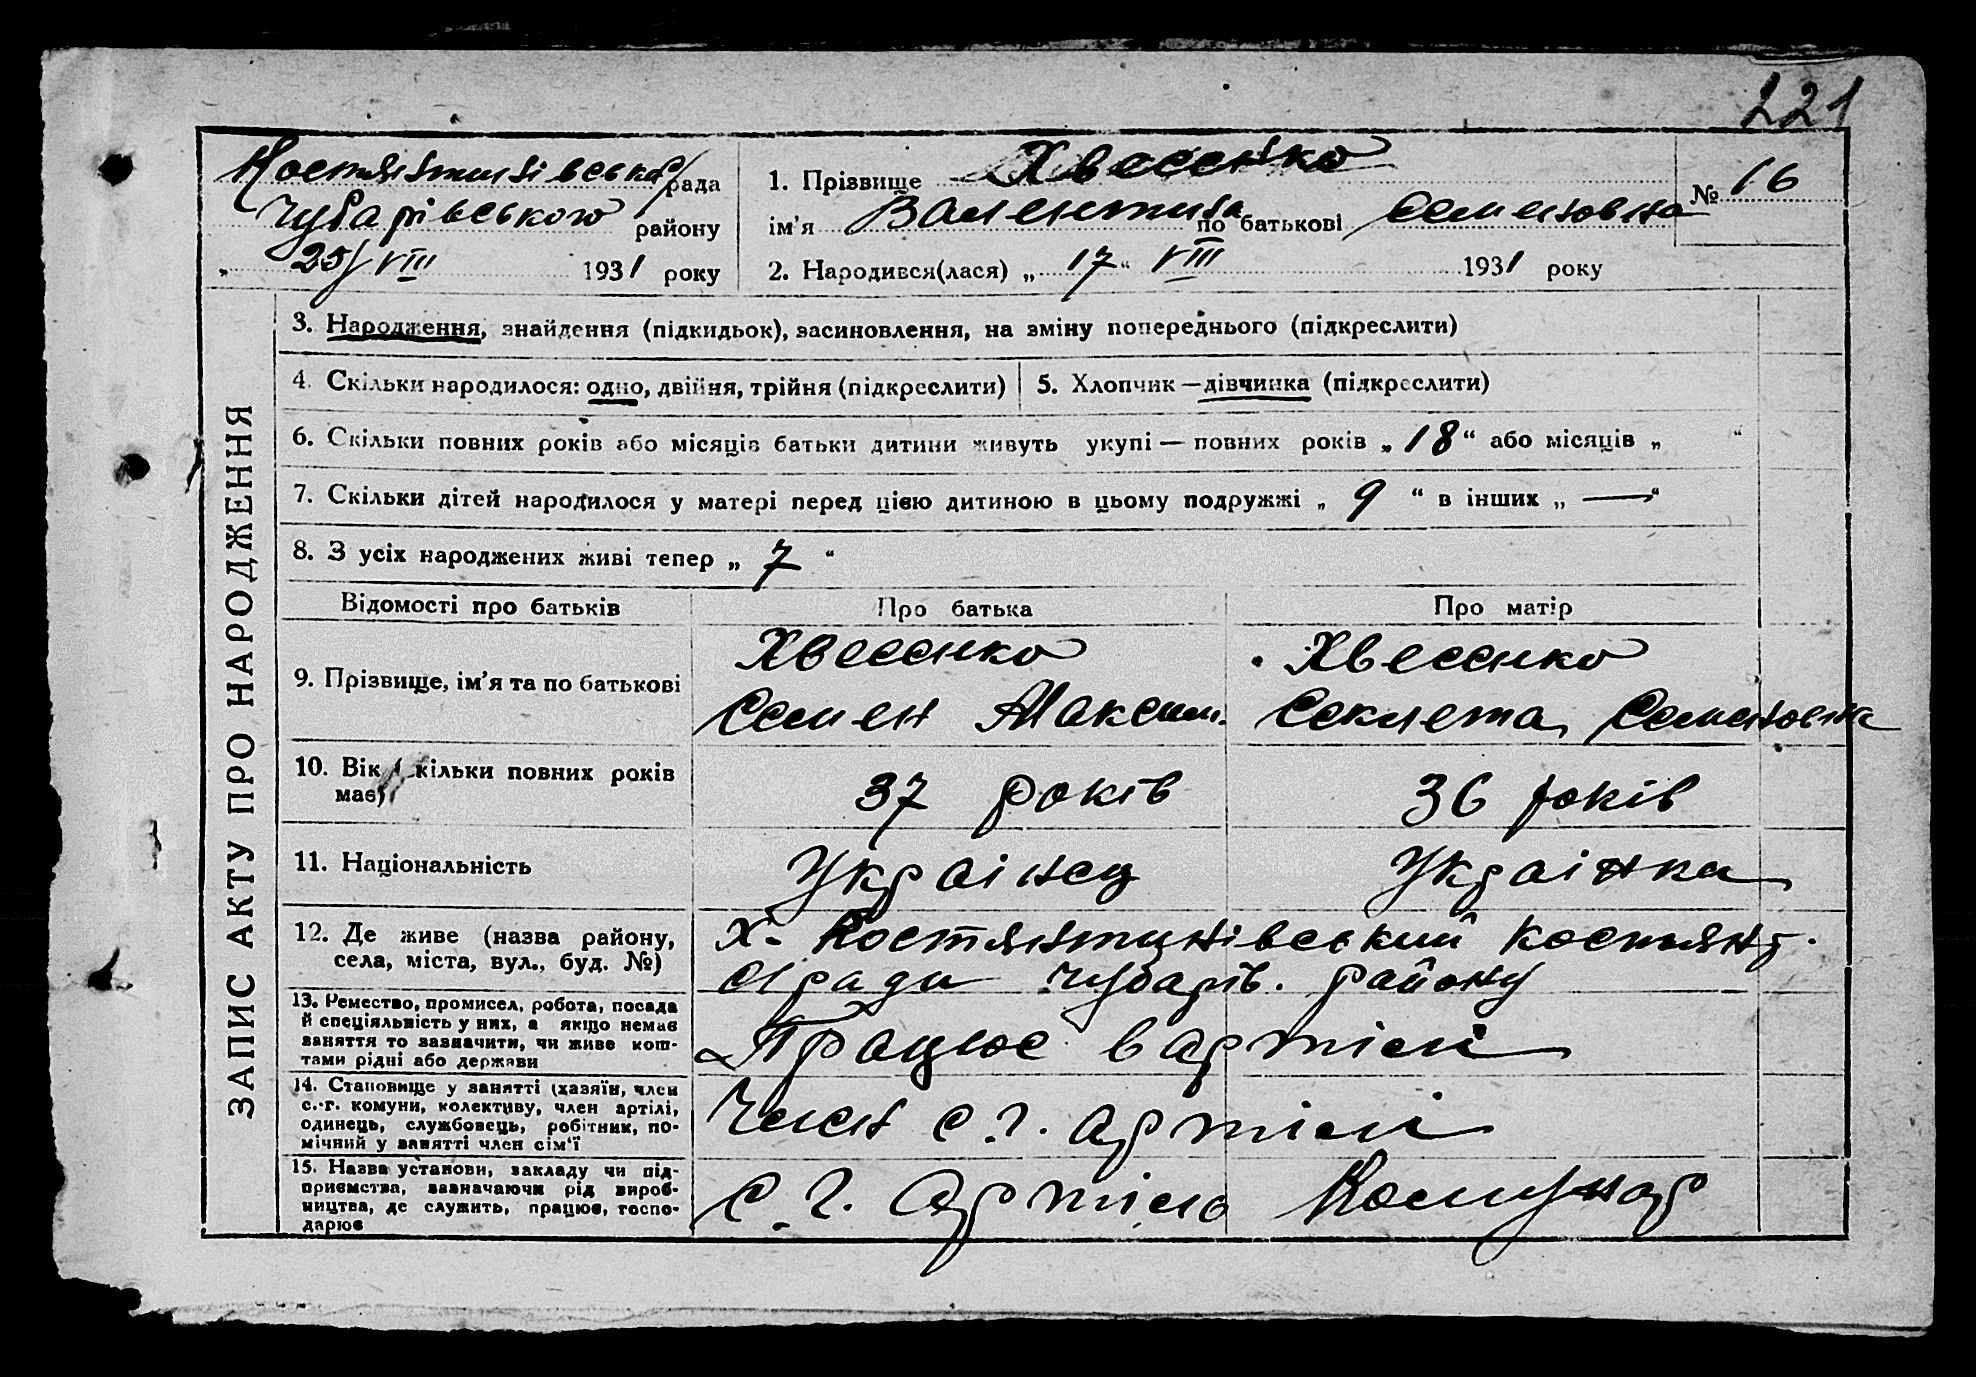 221
Костянтинівська рада
Чубарівського району
25/VIII 1931 року
1. Прізвище Хвесенко
ім'я Валентина по батькові Семеновна
№ 16
2. Народився(лася) „ 17 “ VIII 1931 року
ЗАПИС АКТУ ПРО НАРОДЖЕННЯ
3. Народження, знайдення (підкидьок), засиновлення, на зміну попереднього (підкреслити)
4. Скільки народилося: одно, двійня, трійня (підкреслити)
5. Хлопчик — дівчинка (підкреслити)
6. Скільки повних років або місяців батьки дитини живуть укупі — повних років „ 18 “ або місяців „ “
7. Скільки дітей народилося у матері перед цією дитиною в цьому подружжі „ 9 “ в інших „ — “
8. З усіх народжених живі тепер „ 7 “
Відомості про батьків
Про батька
Про матір
9. Прізвище, ім'я та по батькові
Хвесенко
Семен Максим.
Хвесенко
Секлета Семеновна
10. Вік (скільки повних років
має)
37 років
36 років
11. Національність
Українец
Українка
12. Де живе (назва району,
села, міста, вул., буд. №)
х. Костянтинівський Костянт.
с/ради Чубарів. району
13. Ремество, промисел, робота, посада
й спеціяльність у них, а якщо немає
заняття то зазначити, чи живе кош-
тами рідні або держави
Працює в артілі
14. Становище у занятті (хазяїн, член
с.-г. комуни, колективу, член артілі,
одинець, службовець, робітник, по-
мічний у занятті член сім'ї
Член с.г. артілі
15. Назва установи, закладу чи під-
приємства, зазначаючи рід вироб-
ництва, де служить, працює, госпо-
дарює
с.г. Артіль Комунар